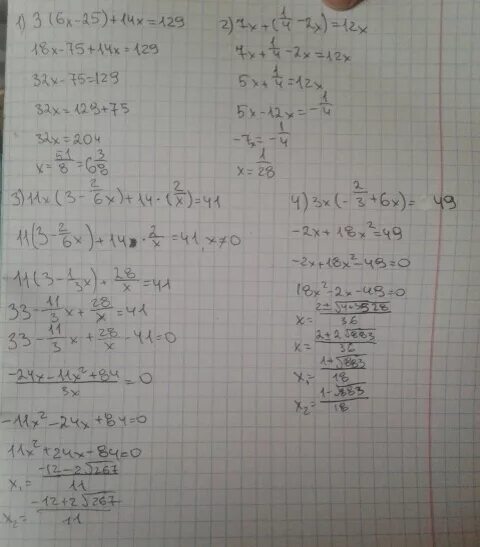 1) 3(6x-25)+14x=129
18x-75+14x=129
32x-75=129
32x=129+75
32x=204
x=51/8=6 3/8
2) 7x+(1/4-2x)=12x
7x+1/4-2x=12x
5x+1/4=12x
5x-12x=-1/4
-7x=-1/4
x=1/28
3) 11x(3-2/6x)+14·(2/x)=41
11(3-2/6x)+14·2/x=41, x≠0
11(3-1/3x)+28/x=41
33-11/3x+28/x=41
33-11/3x+28/x-41=0
-24x-11x²+84/3x=0
-11x²-24x+84=0
11x²+24x-84=0
x₁=-12-2√267/11
x₂=-12+2√267/11
4) 3x(-2/3+6x)=49
-2x+18x²=49
-2x+18x²-49=0
18x²-2x-49=0
x=2±√4+3528/36
x=2±2√883/36
x₁=1+√883/18
x₂=1-√883/18